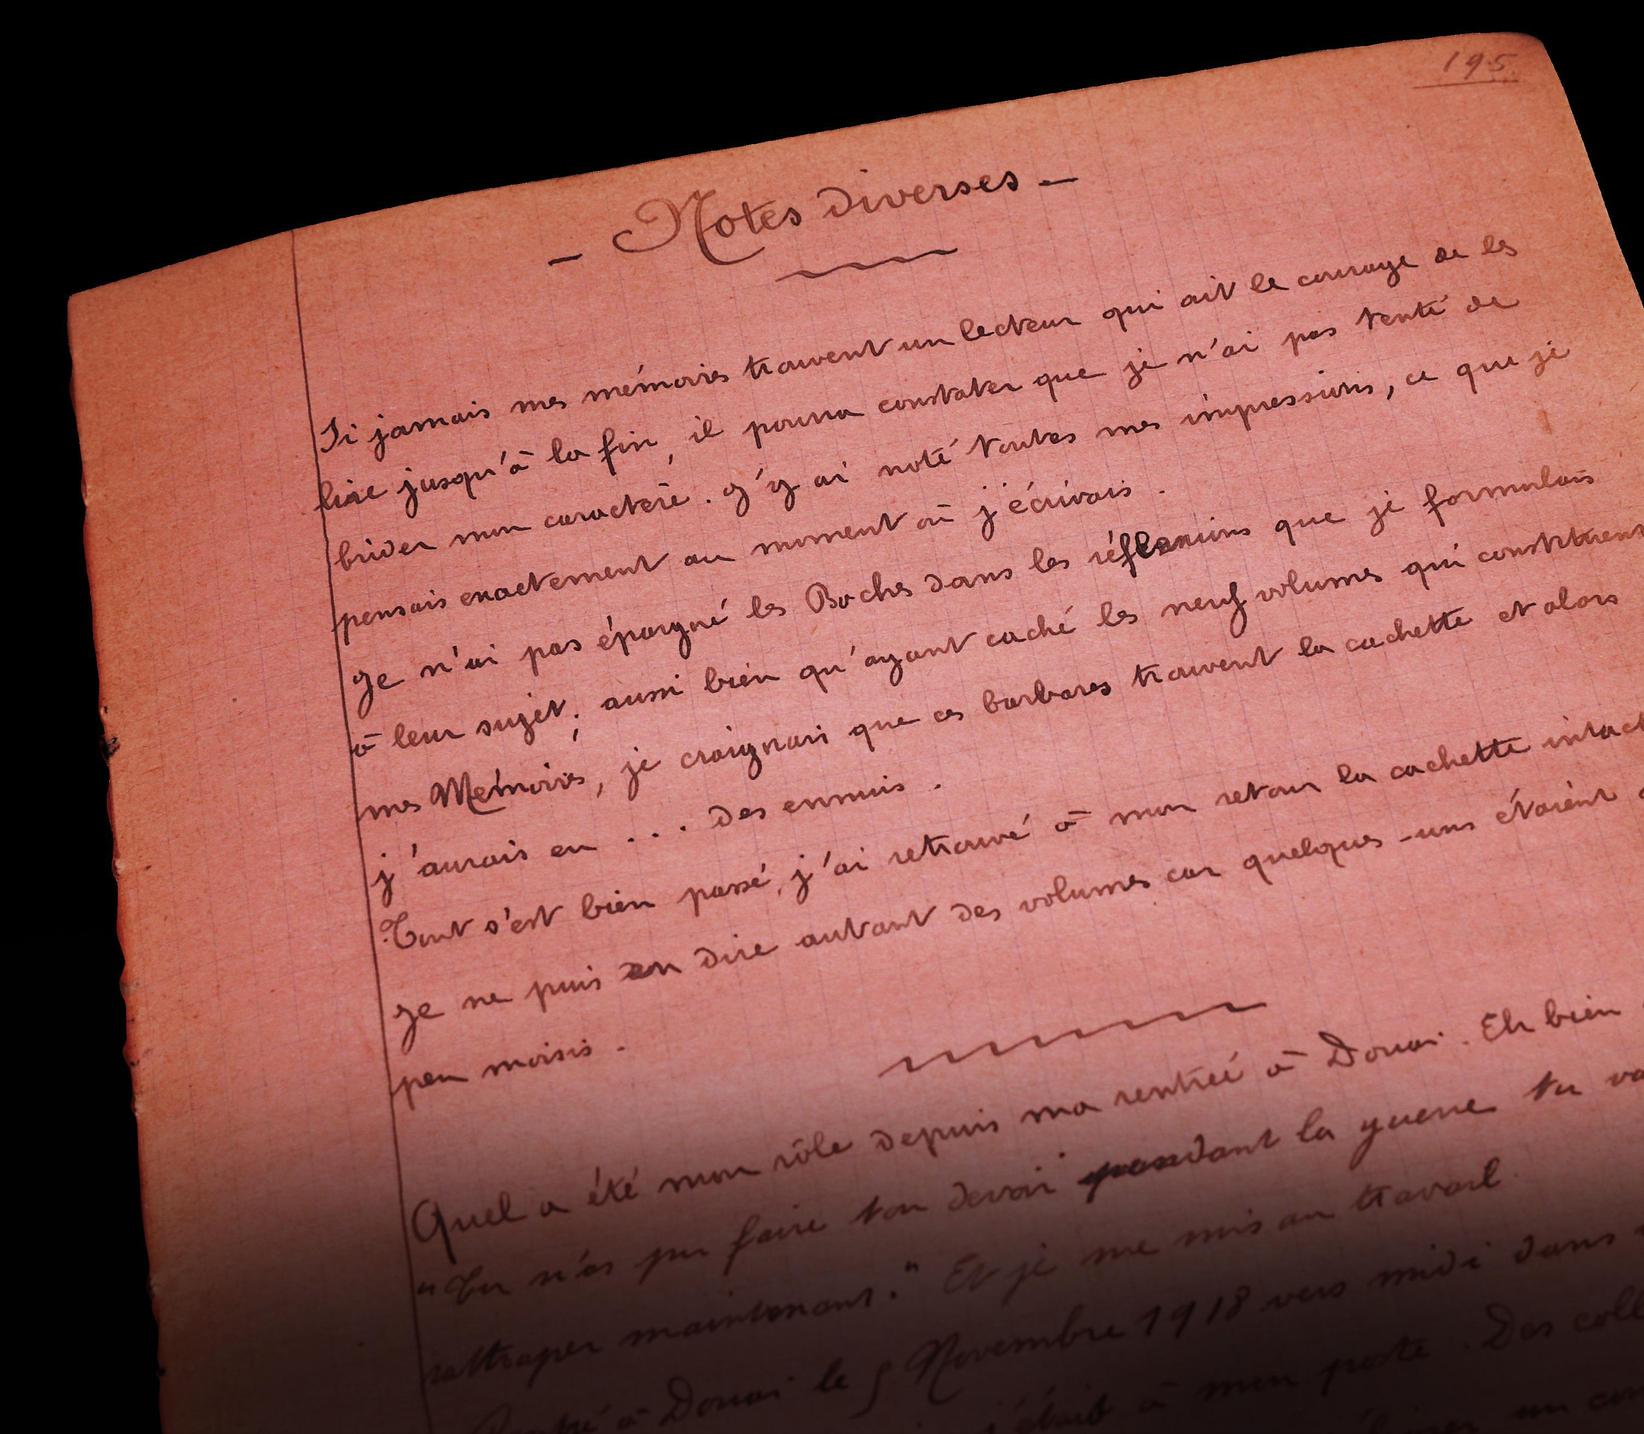 195
- Notes diverses -
Si jamais mes mémoires trouvent un lecteur qui ait le courage de les
lire jusqu'à la fin, il pourra constater que je n'ai pas tenté de
brider mon caractère. J'y ai noté toutes mes impressions, ce que je
pensais exactement au moment où j'écrivais.
Je n'ai pas épargné les Boches dans les réflexions que je formulais
à leur sujet; aussi bien qu'ayant caché les neuf volumes qui constituent
mes Mémoires, je craignais que ces barbares trouvent la cachette et alors
j'aurais eu ... des ennuis.
Tout s'est bien passé, j'ai retrouvé à mon retour la cachette
Je ne puis en dire autant des volumes car quelques-uns étaient
peu moisis.
Quel a été mon rôle depuis ma rentrée à Douai. Eh bien
"Tu n'as pu faire ton devoir pendant la guerre tu
rattraper maintenant." Et je me mis au travail.
à Douai le 5 Novembre 1918 vers midi dans
j'étais à mon poste. Des
un